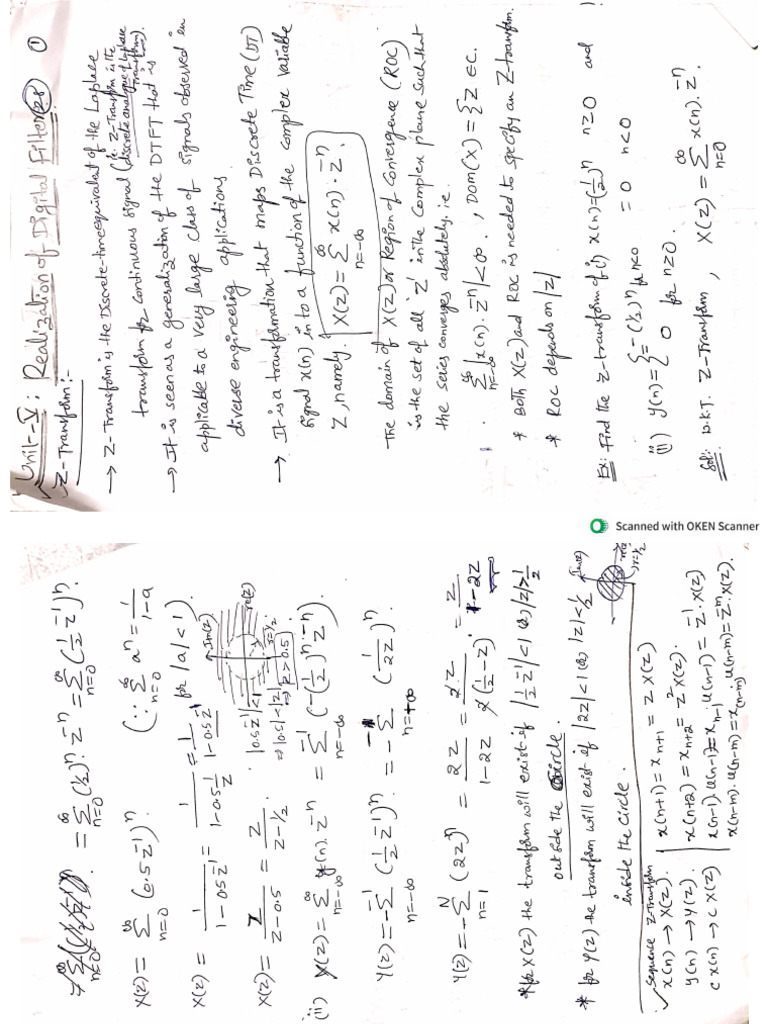 Unit-V: Realization of Digital Filters ①
Z-Transform:-
→ Z-Transform is the Discrete-time equivalent of the Laplace
transform for continuous signal (i.e. Z-Transform is the discrete analogue of Laplace transform).
→ It is seen as a generalization of the DTFT that is
applicable to a very large class of signals observed in
diverse engineering applications.
→ It is a transformation that maps Discrete Time (DT)
signal x(n) in to a function of the complex variable
Z, namely. X(z) = ∞ Σ n=-∞ x(n). z^-n.
The domain of X(z) or Region of Convergence (ROC)
is the set of all 'z' in the complex plane such that
the series converges absolutely. i.e.
∞ Σ n=-∞ |x(n). z^-n| < ∞., DOM(X) = {Z ∈ C.
* Both X(z) and ROC is needed to specify an Z-transform.
* ROC depends on |z|
Ex: Find the z-transform of (i) x(n) = (1/2)^n n≥0 and
= 0 n<0
(ii) y(n) = { -(1/2)^n for n<0
= 0 for n≥0.
Sol: W.K.T. Z-Transform, X(z) = ∞ Σ n=0 x(n). z^-n.
Scanned with OKEN Scanner
= ∞ Σ n=0 (1/2)^n. z^-n = ∞ Σ n=0 (1/2 z^-1)^n.
X(z) = ∞ Σ n=0 (0.5 z^-1)^n (∵ ∞ Σ n=0 a^n = 1/1-a
X(z) = 1/1-0.5z^-1 = 1/1-0.5 1/z = 1/1-0.5z^-1 for |a|<1).
X(z) = z/z-0.5 = z/z-1/2. |0.5z^-1|<1
⇒ |0.5|<|z|
⇒ z>0.5
Im(z)
re(z)
r=1/2
(ii) Y(z) = ∞ Σ n=-∞ y(n). z^-n = -1 Σ n=-∞ (-(1/2)^n z^-n).
Y(z) = - -1 Σ n=-∞ (1/2 z^-1)^n. = - Σ (1/2z)^n
Y(z) = - N Σ n=1 (2z)^n = 2z/1-2z = 2z/2(1/2-z) = z/1-2z
* for X(z) the transform will exist if |1/2 z^-1|<1 (or) |z|>1/2
outside the circle.
* for Y(z) the transform will exist if |2z|<1 (or) |z|<1/2
inside the circle.
Im(z)
re(z)
r=1/2
✓ Sequence Z-Transform
x(n) → X(z).
y(n) → Y(z).
c x(n) → c X(z)
x(n+1) = x n+1 = z X(z)
x(n+2) = x n+2 = z^2 X(z).
x(n-1). u(n-1) = x n-1. u(n-1) = z^-1. X(z)
x(n-m). u(n-m) = x (n-m). u(n-m) = z^-m. X(z).